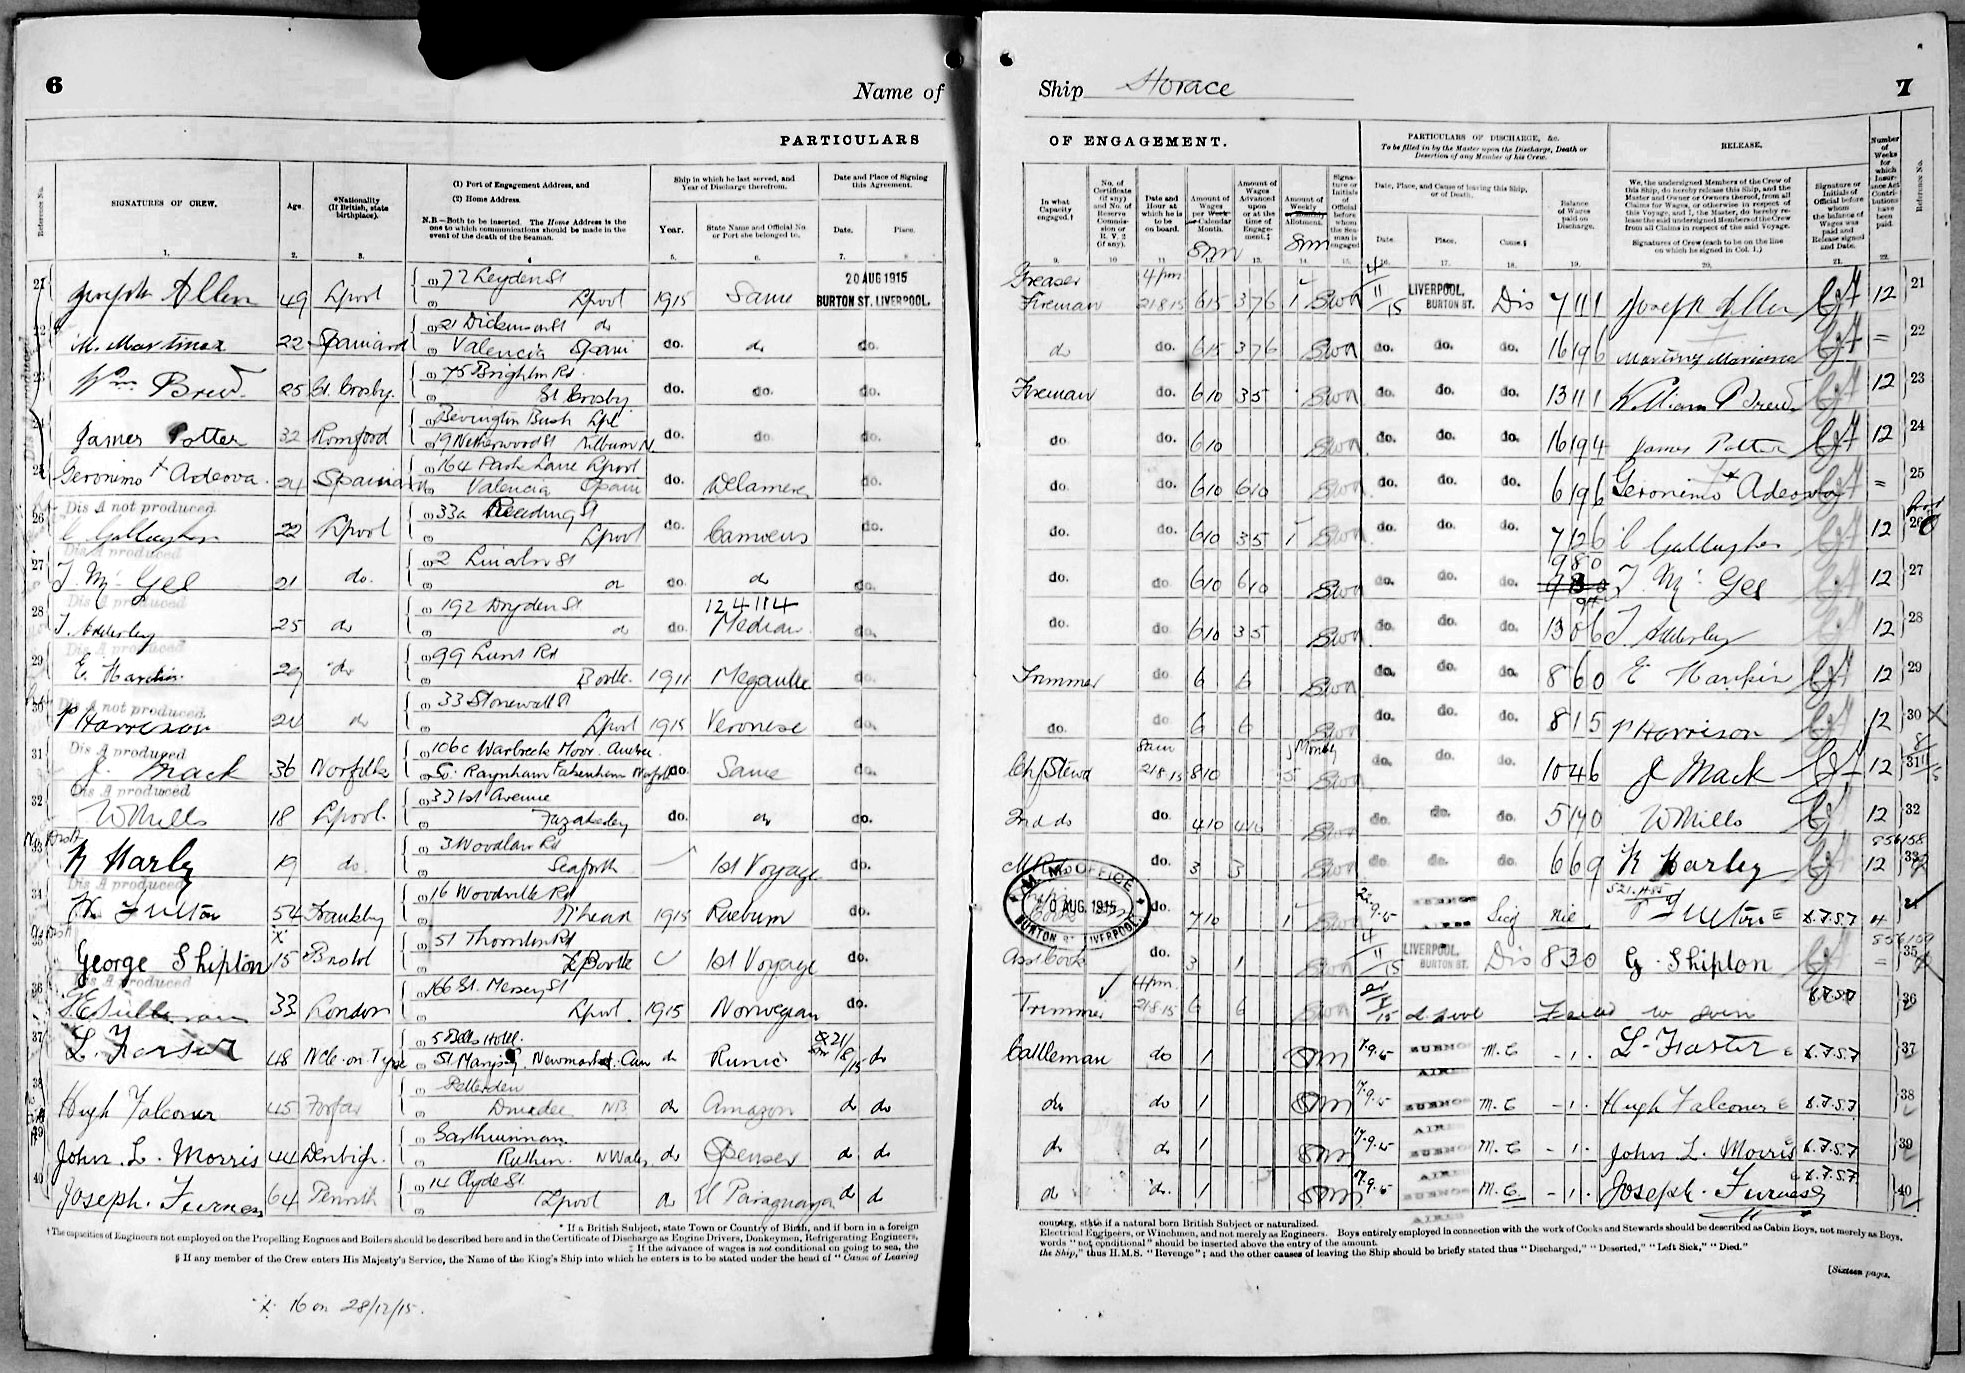 6
Name of
PARTICULARS
Reference No.
SIGNATURES OF CREW.
Age.
*Nationality (If British, state birthplace).
(1) Port of Engagement Address, and
(2) Home Address.
N.B—Both to be inserted. The Home Address is the one to which communications should be made in the event of the death of the Seaman.
Ship in which he last served, and Year of Discharge therefrom.
Year.
State Name and Official No. or Port she belonged to.
Date and Place of Signing this Agreement.
Date.
Place.
1. 2. 3. 4 5. 6. 7. 8.
21 Joseph Allen 49 Lpool (1) 72 Leyden St (2) Lpool 1915 Same 20 AUG 1915 BURTON ST. LIVERPOOL.
22 M. Martinez 22 Spaniard (1) 21 Dickinson St do (2) Valencia Spain do. do do.
23 Wm Brew. 25 Gt. Crosby. (1) 75 Brighton Rd. (2) Gt Crosby do. do. do.
24 James Potter 32 Romford (1) Bevington Bush Lpl (2) 19 Netherwood St Kilburn N. do. do. do.
25 Geronimo + Adeova. 24 Spaniard (1) 164 Park Lane Lpool (2) Valencia Spain do. Delamere do.
Dis A not produced
26 C Gallagher 22 Lpool (1) 33a Reading St (2) Lpool do. Camoens do.
Dis A produced
27 T. Mc Gee 21 do. (1) 2 Lincoln St (2) do do. do do.
Dis A produced
28 T. Adderley 25 do (1) 192 Dryden St (2) do do. 124114 Median do.
Dis A produced
29 E. Hankin 29 do (1) 99 Lunt Rd (2) Bootle. 1911 Megantic do.
Dis A not produced.
30 P Harrison 24 do (1) 33 Stonewall St (2) Lpool 1915 Veronese do.
Dis A produced
31 J. Mack 36 Norfolk (1) 106c Warbreck Moor. Aintree (2) So. Raynham Fakenham Norfolk do. Same do.
Dis A produced
32 W Mills 18 Lpool. (1) 33 1st Avenue (2) Fazakerley do. do do.
33 N Harley 19 do. (1) 3 Woodlawn Rd (2) Seaforth 1st Voyage do.
Dis A produced
34 Fulton 54 Frankby (1) 16 Woodville Rd (2) B'head 1915 Raeburn do.
35 George Shipton 15 Bristol (1) 51 Thornton Rd (2) Bootle 1st Voyage do.
Dis A produced
36 Sullivan 33 London (1) 166 St. Mersey St (2) Lpool. 1915 Norwegian do.
37 L. Fraser 48 Ncle-on-Tyne (1) 5 Bells Hotel. (2) St. Marys Sq. Newmarket. Cam do Runic 21/8/15 do
38 Hugh Falconer 45 Forfar (1) Petterden (2) Dundee NB do Amazon do do
39 John. L. Morris 44 Denbigh. (1) (2) Ruthin. N Wales do Spenser do do
40 Joseph. Furness 64 Penrith (1) 14 Clyde St (2) Lpool do El Paraguayo do do
* If a British Subject, state Town or Country of Birth, and if born in a foreign
† The capacities of Engineers not employed on the Propelling Engines and Boilers should be described here and in the Certificate of Discharge as Engine Drivers, Donkeymen, Refrigerating Engineers,
‡ If the advance of wages is not conditional on going to sea, the
§ If any member of the Crew enters His Majesty's Service, the Name of the King's Ship into which he enters is to be stated under the head of "Cause of Leaving
x 16 on 28/12/15.
Ship Horace
7
OF ENGAGEMENT.
PARTICULARS OF DISCHARGE, &c.
To be filled in by the Master upon the Discharge, Death or Desertion of any Member of his Crew.
RELEASE.
In what Capacity engaged.†
No. of Certificate (if any) and No. of Reserve Commission or R. V. 2 (if any).
Date and Hour at which he is to be on board.
Amount of Wages per Week or Calendar Month.
Amount of Wages Advanced upon or at the time of Engagement.‡
Amount of Weekly or Monthly Allotment.
Signature or Initials of Official before whom the Seaman is engaged
Date, Place, and Cause of leaving this Ship, or of Death.
Date.
Place.
Cause.§
Balance of Wages paid on Discharge.
We, the undersigned Members of the Crew of this Ship, do hereby release this Ship, and the Master and Owner or Owners thereof, from all Claims for Wages, or otherwise in respect of this Voyage, and I, the Master, do hereby release the said undersigned Members of the Crew from all Claims in respect of the said Voyage.
Signatures of Crew (each to be on the line on which he signed in Col. 1.)
Signature or Initials of Official before whom the balance of Wages was paid and Release signed and Date.
Number of Weeks for which Insurance Act Contributions have been paid.
Reference No.
9. 10 11 12 13. 14. 15. 16. 17. 18. 19. 20. 21. 22.
Greaser Fireman 4pm 21 8 15 6 15 3 7 6 1 4/11/15 LIVERPOOL, BURTON ST. Dis 7 11 1 Joseph Allen 12 21
do do. 6 15 3 7 6 do. do. do. 16 19 6 Martinez Mariano = 22
Fireman do. 6 10 3 5 do. do. do. 13 11 1 William P Brew 12 23
do do. 6 10 do. do. do. 16 19 4 James Potter 12 24
do. do. 6 10 6 10 do. do. do. 6 19 6 Geronimo + Adeova = 25
do. do. 6 10 3 5 1 do. do. do. 7 12 6 C Gallagher 12 26
do. do. 6 10 6 10 do. do. do. 9 8 0 T. Mc Gee 12 27
do. do. 6 10 3 5 do. do. do. 13 0 6 T Adderley 12 28
Trimmer do. 6 6 do. do. do. 8 6 0 E Hankin 12 29
do. do. 6 6 do. do. do. 8 1 5 P Harrison 12 30
Chf Stewd 8am 21 8 15 8 10 5 Monthly do. do. do. 10 4 6 J Mack 12 31
2nd do do. 4 10 4 10 do. do. do. 5 14 0 W Mills 12 32
do. 3 3 do. do. do. 6 6 9 N Harley 12 856158 33
M. M. OFFICE 20 AUG 1915 BURTON ST LIVERPOOL
do. 7 10 1 22-9-15 BUENOS AIRES nil 521.485 Fulton 4 34
Asst Cook do. 3 1 4/11/15 LIVERPOOL, BURTON ST. Dis 8 3 0 G. Shipton = 856159 35
Trimmer 4pm. 21 8 15 6 6 Lpool Failed to join 36
Cattleman do 1 17.9.15 BUENOS AIRES M.C - 1 - L. Fraster 37
do do 1 17.9.15 BUENOS AIRES M.C - 1 - Hugh Falconer 38
do do 1 17.9.15 BUENOS AIRES M.C - 1 - John L. Morris 39
do do. 1 17.9.15 BUENOS AIRES M.C. - 1 - Joseph. Furness 40
country, state if a natural born British Subject or naturalized.
Electrical Engineers, or Winchmen, and not merely as Engineers. Boys entirely employed in connection with the work of Cooks and Stewards should be described as Cabin Boys, not merely as Boys.
words "not conditional" should be inserted above the entry of the amount.
the Ship," thus H.M.S. "Revenge"; and the other causes of leaving the Ship should be briefly stated thus "Discharged," "Deserted," "Left Sick," "Died."
[Sixteen pages.